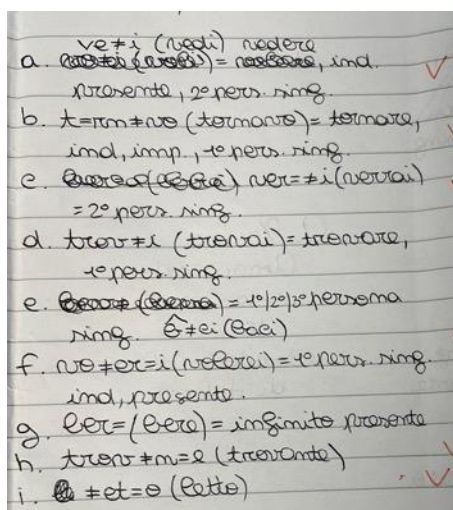 ve≠i (vedi) vedere
a. = , ind.
presente, 2° pers. sing.
b. t=rn≠vo (tornavo)= tornare,
ind, imp., 1° pers. sing.
c. ver=≠i(verrai)
= 2° pers. sing.
d. trov≠i (trovai)= trovare,
1° pers sing.
e. = 1°/2°/3° persona
sing.
f. vo≠er=i(volerei)= 1° pers. sing.
ind, presente.
g. = infinito presente
h. trov≠n=e (trovante)
i. ≠et=o (letto)